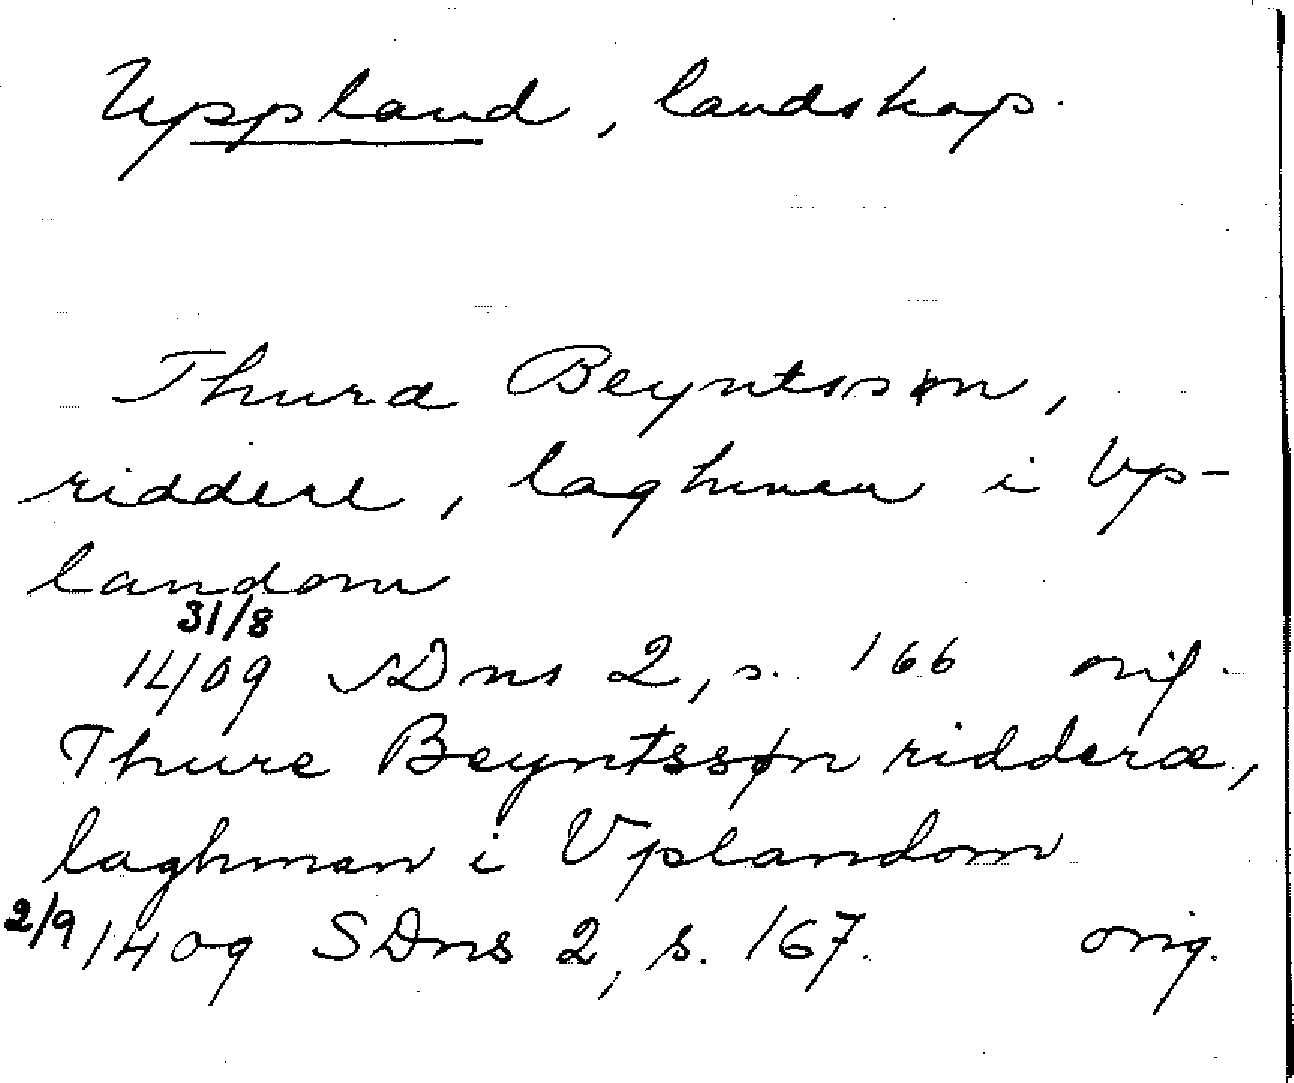 Uppland, landskap.
Thura Beyntsøn,
riddere, laghman i Vp-
landom
31/8
1409 SDns 2, s. 166 orig.
Thure Beyntssøn ridderæ,
laghman i Vplandom
2/9 1409 SDns 2, s. 167. orig.